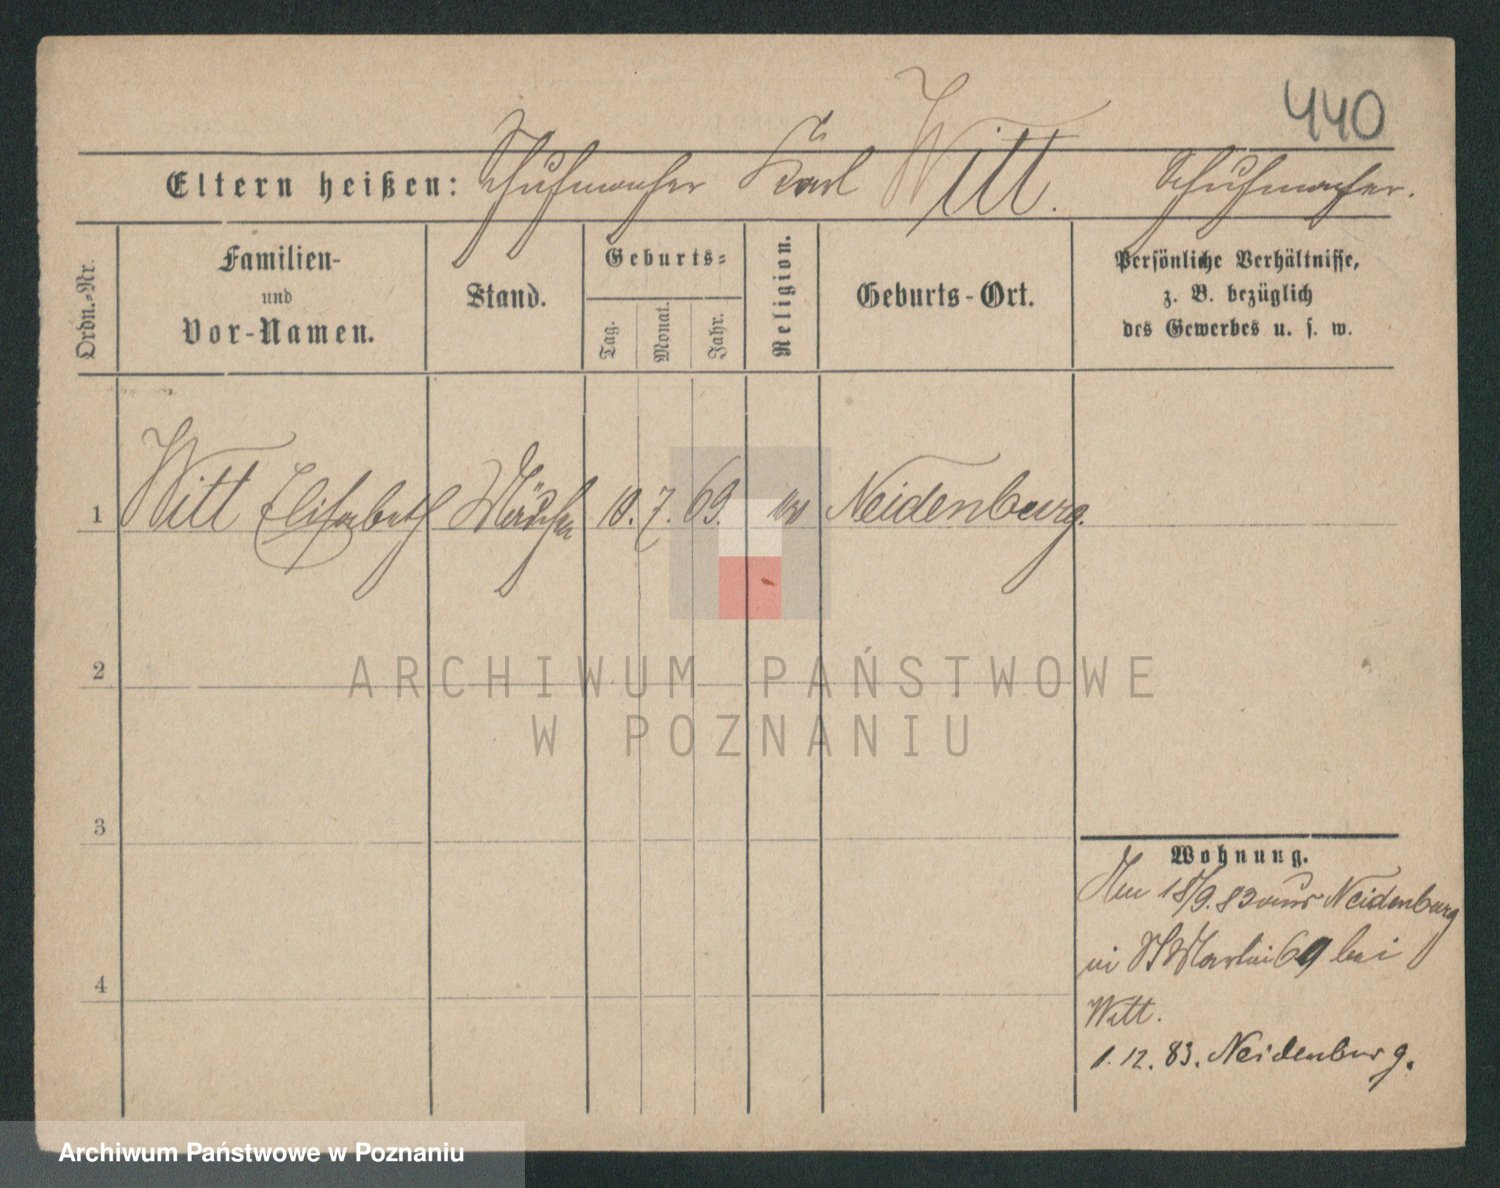 440
Eltern heißen: Schuhmacher Karl Witt. Schuhmacher.
Ordn.-Nr.
Familien-
und
Vor-Namen.
Stand.
Geburts-
Tag.
Monat.
Jahr.
Religion.
Geburts-Ort.
Persönliche Verhältnisse,
z. B. bezüglich
des Gewerbes u. s. w.
1 Witt Elisabeth Mädchen 10. 7. 69. Neidenburg.
2
3
4
Wohnung.
18/9. 83 aus Neidenburg
in St Martin 69 bei
Witt.
1. 12. 83. Neidenburg.
ARCHIWUM PAŃSTWOWE
W POZNANIU
Archiwum Państwowe w Poznaniu